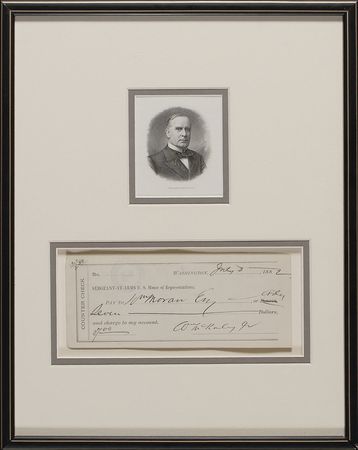 COUNTER CHECK.
No.
WASHINGTON, July 3 1882
SERGEANT-AT-ARMS U. S. House of Representatives,
PAY TO Wm Moran Esq or
Seven Dollars,
and charge to my account.
$7.00 W McKinley Jr